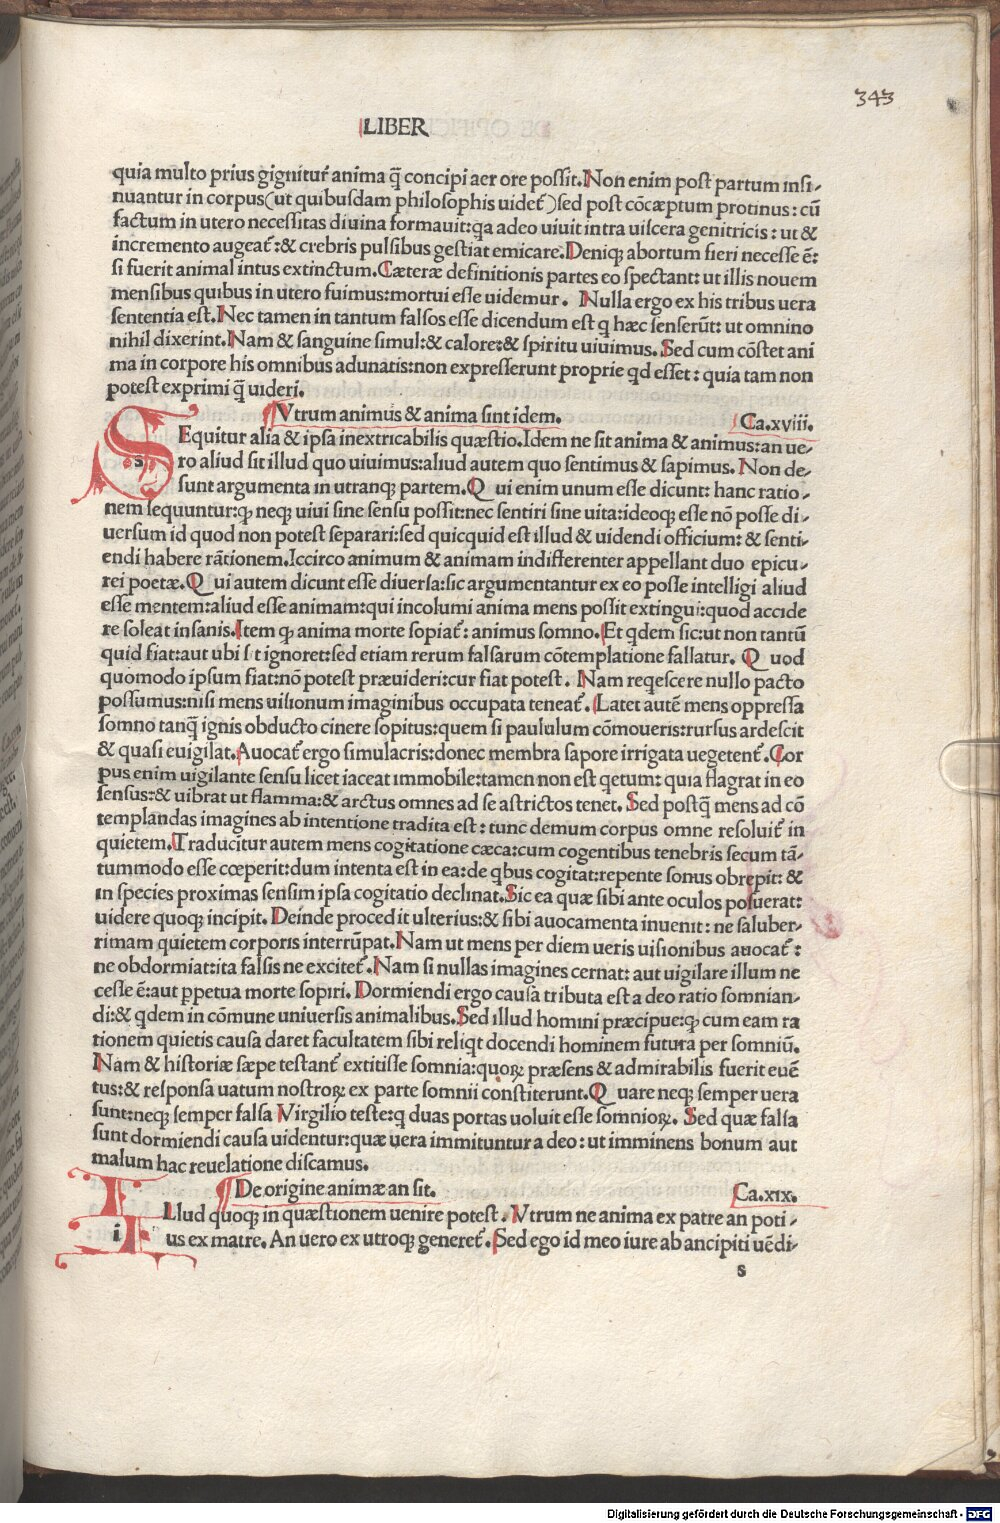 343
LIBER
quia multo prius gignitur̄ anima q̄ concipi aer ore possit. Non enim post partum insi-
nuantur in corpus(ut quibusdam philosophis uidet᷑)sed post cōcæptum protinus: cū
factum in utero necessitas diuina formauit:qa adeo uiuit intra uiscera genitricis: ut &
incremento augeat᷑:& crebris pulsibus gestiat emicare. Deniqꝫ abortum fieri necesse ē:
si fuerit animal intus extinctum. Cæteræ definitionis partes eo spectant: ut illis nouem
mensibus quibus in utero fuimus:mortui esse uidemur. Nulla ergo ex his tribus uera
sententia est. Nec tamen in tantum falsos esse dicendum est q hæc senserūt: ut omnino
nihil dixerint. Nam & sanguine simul:& calore:& spiritu uiuimus. Sed cum cōstet ani
ma in corpore his omnibus adunatis:non expresserunt proprie qd esset: quia tam non
potest exprimi q̄ uideri.
Vtrum animus & anima sint idem. Ca.xviii.
SEquitur alia & ipsa inextricabilis quæstio. Idem ne sit anima & animus:an ue-
ro aliud sit illud quo uiuimus:aliud autem quo sentimus & sapimus. Non de-
sunt argumenta in utranqꝫ partem. Qui enim unum esse dicunt: hanc ratio-
nem sequuntur:qꝫ neqꝫ uiui sine sensu possit:nec sentiri sine uita:ideoqꝫ esse nō posse di-
uersum id quod non potest separari:sed quicquid est illud & uidendi officium: & senti-
endi habere rātionem. Iccirco animum & animam indifferenter appellant duo epicu-
rei poetæ. Qui autem dicunt esse diuersa:sic argumentantur ex eo posse intelligi aliud
esse mentem:aliud esse animam:qui incolumi anima mens possit extingui:quod accide
re soleat insanis. Item qꝫ anima morte sopiat᷑: animus somno. Et qdem sic:ut non tantū
quid fiat:aut ubi sit ignoret:sed etiam rerum falsarum cōtemplatione fallatur. Quod
quomodo ipsum fiat:nō potest præuideri:cur fiat potest. Nam reqescere nullo pacto
possumus:nisi mens uisionum imaginibus occupata teneat᷑. Latet autē mens oppressa
somno tanq̄ ignis obducto cinere sopitus:quem si paululum cōmoueris:rursus ardescit
& quasi euigilat. Auocat᷑ ergo simulacris:donec membra sapore irrigata uegetent᷑. Cor
pus enim uigilante sensu licet iaceat immobile:tamen non est qetum: quia flagrat in eo
sensus:& uibrat ut flamma:& arctus omnes ad se astrictos tenet. Sed postq̄ mens ad cō
templandas imagines ab intentione tradita est: tunc demum corpus omne resoluit᷑ in
quietem. Traducit᷑ur autem mens cogitatione cæca:cum cogentibus tenebris secum tā-
tummodo esse cœperit:dum intenta est in ea:de qbus cogitat:repente sonus obrepit: &
in species proximas sensim ipsa cogitatio declinat. Sic ea quæ sibi ante oculos posuerat:
uidere quoqꝫ incipit. Deinde procedit ulterius:& sibi auocamenta inuenit: ne saluber-
rimam quietem corporis interrūpat. Nam ut mens per diem ueris uisionibus auocat᷑:
ne obdormiat:ita falsis ne excitet᷑. Nam si nullas imagines cernat: aut uigilare illum ne
cesse ē:aut ꝑpetua morte sopiri. Dormiendi ergo causa tributa est a deo ratio somnian-
di:& qdem in cōmune uniuersis animalibus. Sed illud homini præcipue:qꝫ cum eam ra
tionem quietis causa daret facultatem sibi reliqt docendi hominem futura per somniū.
Nam & historiæ sæpe testant᷑ extitisse somnia:quoꝝ præsens & admirabilis fuerit euē
tus:& responsa uatum nostroꝝ ex parte somnii constiterunt. Quare neqꝫ semper uera
sunt:neqꝫ semper falsa Virgilio teste:q duas portas uoluit esse somnioꝝ. Sed quæ falsa
sunt dormiendi causa uidentur:quæ uera immituntur a deo: ut imminens bonum aut
malum hac reuelatione discamus.
De origine animæ an sit. Ca.xix.
ILlud quoqꝫ in quæstionem uenire potest. Vtrum ne anima ex patre an poti-
us ex matre. An uero ex utroqꝫ generet᷑. Sed ego id meo iure ab ancipiti uēdi-
s
Digitalisierung gefördert durch die Deutsche Forschungsgemeinschaft - DFG